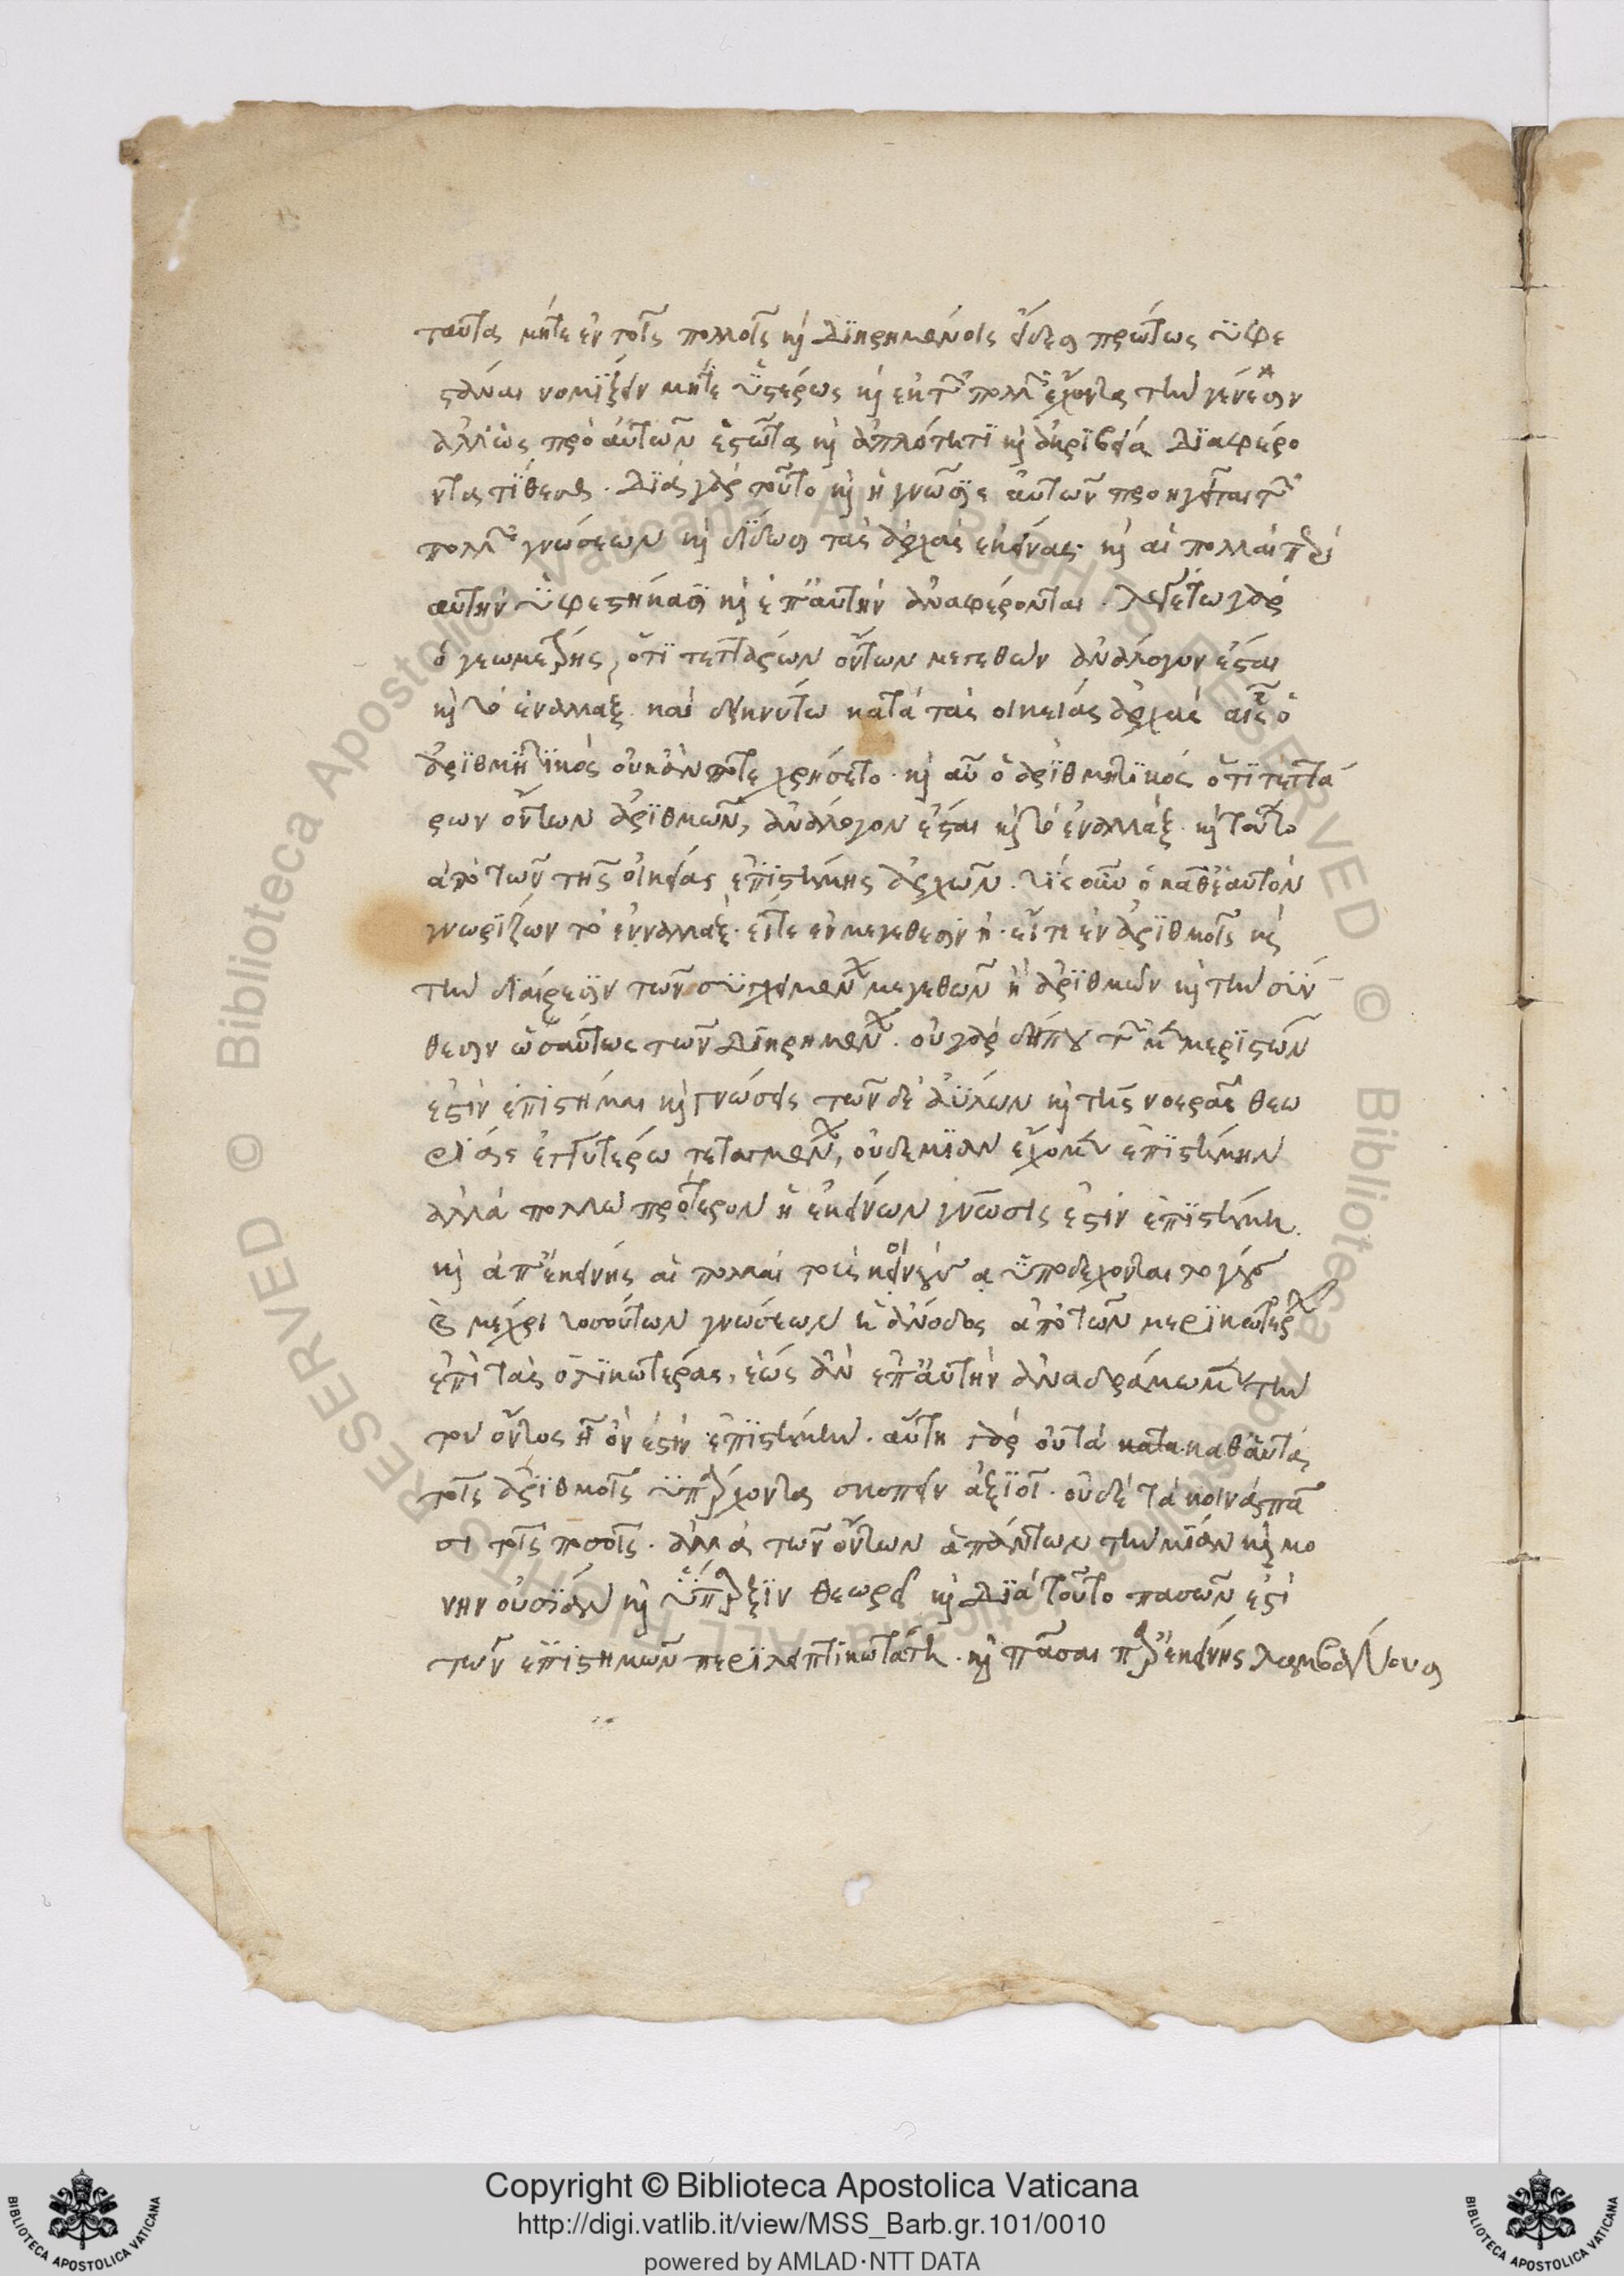 ταῦτα μήτε ἐν τοῖς πολλοῖς καὶ διηρημένοις εἴδεσι πρώτως ὑφε
στάναι νομίζειν μήτε ὑστέρως καὶ ἐκ τῶν πολλῶν ἔχοντα τὴν γένεσιν
ἀλλ' ὡς πρὸ αὐτῶν ἑστῶτα καὶ ἁπλότητι καὶ ἀκριβείᾳ διαφέρο
ντα τίθεσθαι. διὰ γὰρ τοῦτο καὶ ἡ γνῶσις αὐτῶν προηγεῖται τῶν
πολλῶν γνώσεων καὶ δίδωσι τὰς ἀρχὰς ἐκείναις. καὶ αἱ πολλαὶ περὶ
αὐτὴν ὑφεστήκασι καὶ ἐπ' αὐτὴν ἀναφέρονται. λεγέτω γὰρ
ὁ γεωμέτρης, ὅτι τεττάρων ὄντων μεγεθῶν ἀνάλογον ἔσται
καὶ τὸ ἐναλλάξ. καὶ δεικνύτω κατὰ τὰς οἰκείας ἀρχὰς αἷς ὁ
ἀριθμητικὸς οὐκ ἄν ποτε χρήσαιτο. καὶ αὖ ὁ ἀριθμητικὸς ὅτι τεττά
ρων ὄντων ἀριθμῶν, ἀνάλογον ἔσται καὶ τὸ ἐναλλάξ. καὶ τοῦτο
ἀπὸ τῶν τῆς οἰκείας ἐπιστήμης ἀρχῶν. τίς οὖν ὁ καθ' ἑαυτὸν
γνωρίζων τὸ ἐναλλάξ. εἴτε ἐν μεγέθεσιν ᾖ. εἴτε ἐν ἀριθμοῖς καὶ
τὴν διαίρεσιν τῶν συγκειμένων μεγεθῶν ἢ ἀριθμῶν καὶ τὴν σύν
θεσιν ὡσαύτως τῶν διῃρημένων. οὐ γὰρ δήπου τῶν μὲν μεριστῶν
εἰσὶν ἐπιστῆμαι καὶ γνώσεις τῶν δὲ ἀΰλων καὶ τῆς νοερᾶς θεω
ρίας ἐγγυτέρω τεταγμένων, οὐδεμίαν ἔχομεν ἐπιστήμην
ἀλλὰ πολλῷ πρότερον ἡ ἐκείνων γνῶσίς ἐστιν ἐπιστήμη.
καὶ ἀπ' ἐκείνης αἱ πολλαὶ τοὺς κοινοὺς ὑποδέχονται λόγους
καὶ μέχρι τοσούτων γνώσεων ἡ ἄνοδος ἀπὸ τῶν μερικωτέρων
ἐπὶ τὰς ὁλικωτέρας, ἕως ἂν ἐπ' αὐτὴν ἀναδράμωμεν τὴν
τοῦ ὄντος ᾗ ὄν ἐστιν ἐπιστήμην. αὕτη γὰρ οὐ τὰ κατα καθ' αὑτὰ
τοῖς ἀριθμοῖς ὑπάρχοντα σκοπεῖν ἀξιοῖ. οὐδὲ τὰ κοινὰ πᾶ
σι τοῖς ποσοῖς. ἀλλὰ τῶν ὄντων ἁπάντων τὴν μίαν καὶ μό
νην οὐσίαν καὶ ὕπαρξιν θεωρεῖ καὶ διὰ τοῦτο πασῶν ἐστὶ
τῶν ἐπιστημῶν περιληπτικωτάτη. καὶ πᾶσαι παρ' ἐκείνης λαμβάνουσι
Copyright © Biblioteca Apostolica Vaticana
http://digi.vatlib.it/view/MSS_Barb.gr.101/0010
powered by AMLAD·NTT DATA